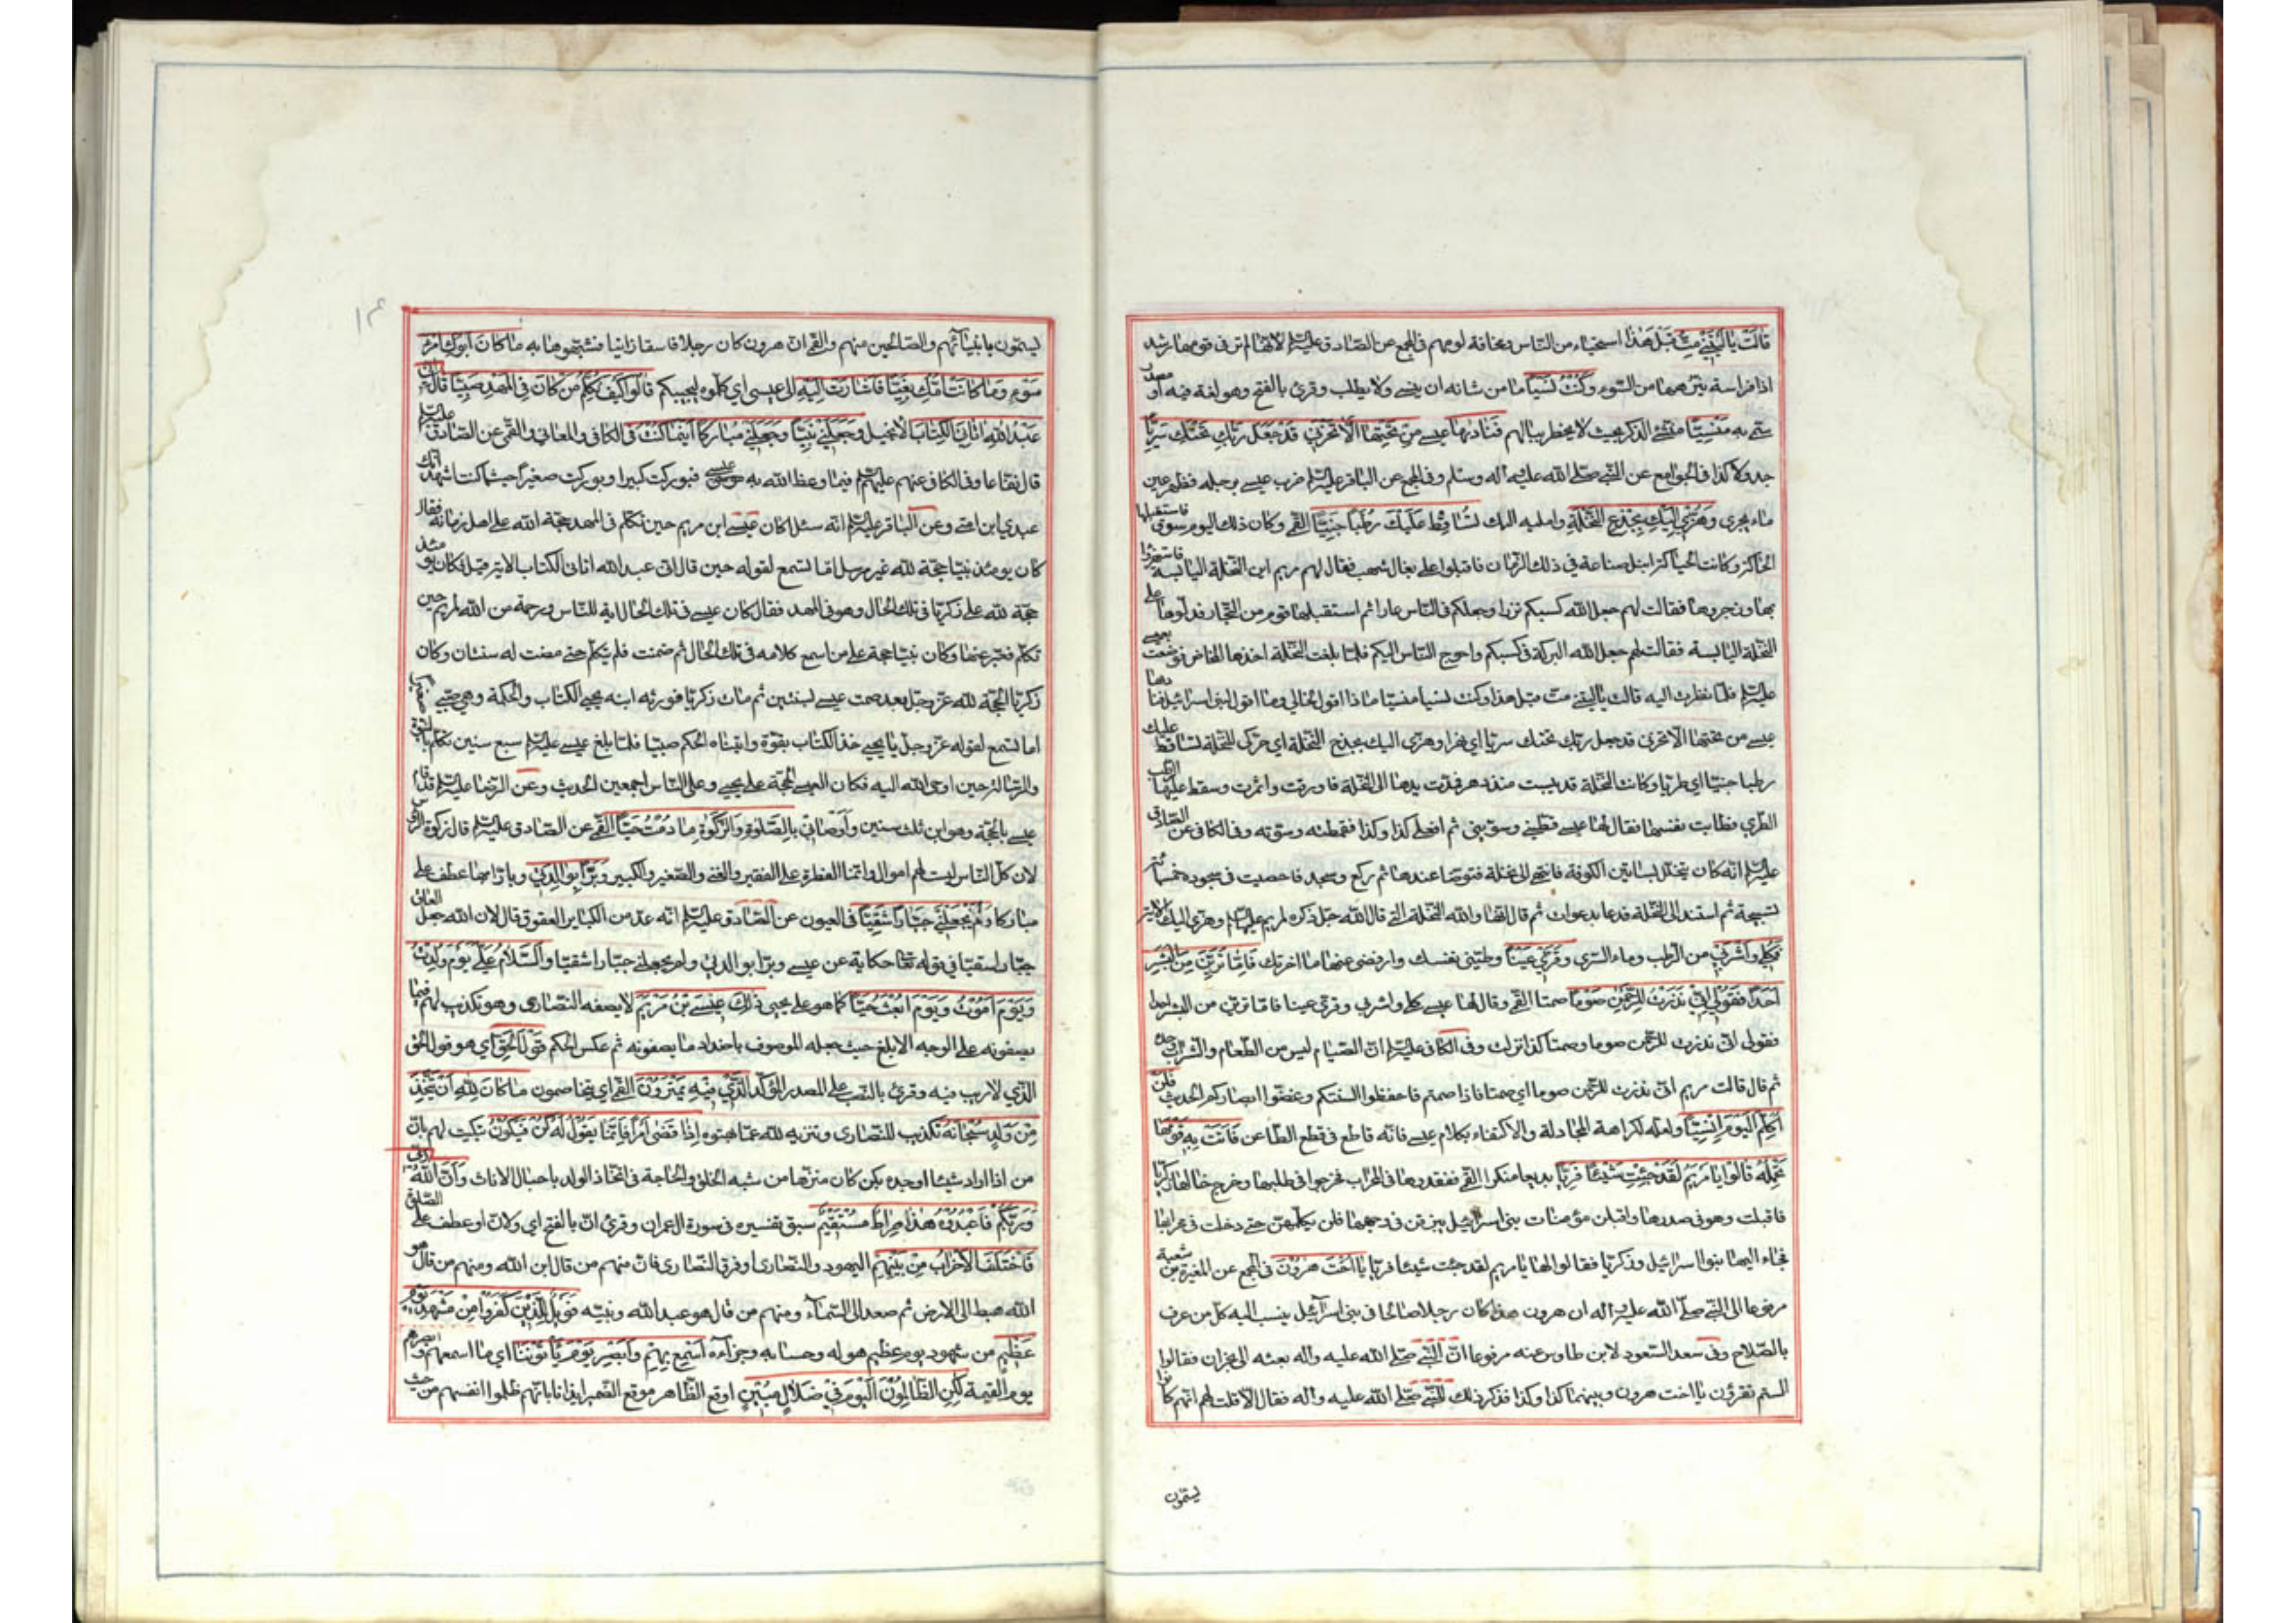 قالَتْ يا لَيْتَني مِتُّ قَبْلَ هٰذا استحياء من الناس ومخافة لومهم في المجمع عن الصادق عليه السلام لانها لم تر في قومها رشيدا
ذا فراسة ينزهها من السوء وَكُنْتُ نَسْياً ما من شانه ان ينسى ولا يطلب وقرئ بالفتح وهو لغة فيه او مصدر
سمّي به مَنْسِيّاً منسي الذكر بحيث لا يخطر ببالهم فَناداها عيسى مِنْ تَحْتِها اَلّا تَحْزَني قَدْ جَعَلَ رَبُّكِ تَحْتَكِ سَرِيّاً
جدولا كذا في الجوامع عن النبي صلى الله عليه واله وسلم وفي المجمع عن الباقر عليه السلام ضرب عيسى برجله فظهر عين
ماء يجرى وَهُزّي اِلَيْكِ بِجِذْعِ النَّخْلَةِ واميليه اليك تُساقِطْ عَلَيْكِ رُطَباً جَنِيّاً القمي وكان ذلك اليوم سوق فاستقبلها
الحاكة وكانت الحياكة انبل صناعة في ذلك الزمان فاقبلوا على بغال شهب فقال لهم مريم اين النخلة اليابسة فاستهزؤا
بها وزجروها فقالت لهم جعل الله كسبكم نزرا وجعلكم في الناس عارا ثم استقبلها قوم من التجار فدلوها على
النخلة اليابسة فقالت لهم جعل الله البركة في كسبكم واحوج الناس اليكم فلما بلغت النخلة اخذها المخاض فوضعت بعيسى
عليه السلام فلما نظرت اليه قالت يا ليتني مت قبل هذا وكنت نسيا منسيا ماذا اقول لخالي وماذا اقول لبني اسرائيل فناديها
عيسى من تحتها الا تحزني قد جعل ربك تحتك سريا اي نهرا وهزى اليك بجذع النخلة اي حركى النخلة تساقط عليك
رطبا جنيا اي طريا وكانت النخلة قد يبست منذ دهر فمدت يدها الى النخلة فاورقت واثمرت وسقط عليها الرطب
الطري فطابت نفسها فقال لها عيسى قمطيني وسويني ثم افعلي كذا وكذا فقمطته وسوته وفي الكافي عن الصادق
عليه السلام انه كان يتخلل بساتين الكوفة فانتهى الى نخلة فتوضا عندها ثم ركع وسجد فاحصيت في سجوده خمسمائة
تسبيحة ثم استند الى النخلة فدعا بدعوات ثم قال انها والله النخلة التي قال الله جل ذكره لمريم عليها السلام وهزى اليك الاية
فَكُلي وَاشْرَبي من الرطب وماء السري وَقَرّي عَيْناً وطيبي نفسك وارفضي عنها ما احزنك فَاِمّا تَرَيِنَّ مِنَ الْبَشَرِ
اَحَداً فَقُولي اِنّي نَذَرْتُ لِلرَّحْمٰنِ صَوْماً صمتا القمي وقال لها عيسى كلي واشربي وقري عينا فاما ترين من البشر احدا
فقولي اني نذرت للرحمن صوما وصمتا كذا نزلت وفي الكافي عليه السلام ان الصيام ليس من الطعام والشراب وحده
ثم قال قالت مريم اني نذرت للرحمن صوما اي صمتا فاذا صمتم فاحفظوا السنتكم وغضوا ابصاركم الحديث فَلَنْ
اُكَلِّمَ الْيَوْمَ اِنْسِيّاً ولعله لكراهة المجادلة والاكتفاء بكلام عيسى فانه قاطع في قطع الطاعن فَاَتَتْ بِهِ قَوْمَها
تَحْمِلُهُ قالُوا يا مَرْيَمُ لَقَدْ جِئْتِ شَيْئاً فَرِيّاً بديعا منكرا القمي ففقدوها في المحراب فخرجوا في طلبها وخرج خالها زكريا
فاقبلت وهو في صدرها واقبلن مؤمنات بني اسرائيل يبزقن في وجهها فلن يكلمهن حتى دخلت في محرابها
فجاء اليها بنوا اسرائيل وزكريا فقالوا لها يا مريم لقد جئت شيئا فريا يا اُخْتَ هرُونَ في المجمع عن المغيرة بن شعبة
مرفوعا الى النبي صلى الله عليه واله ان هرون هذا كان رجلا صالحا في بني اسرآئيل ينسب اليه كل من عرف
بالصلاح وفي سعد السعود لابن طاوس عنه مرفوعا انّ النبي صلى الله عليه واله بعثه الى نجران فقالوا
الستم تقرؤن يا اخت هرون وبينهما كذا وكذا فذكر ذلك للنبي صلى الله عليه واله فقال الا قلت لهم انهم كانوا
يسمون
يسمون بانبيآئهم والصالحين منهم والقمي ان هرون كان رجلا فاسقا زانيا فشبهوها به ما كانَ اَبُوكِ امْرَءَ
سَوْءٍ وَما كانَتْ اُمُّكِ بَغِيّاً فَاَشارَتْ اِلَيْهِ الى عيسى اي كلموه ليجيبكم قالُوا كَيْفَ نُكَلِّمُ مَنْ كانَ فِي الْمَهْدِ صَبِيّاً قالَ اِنّي
عَبْدُ اللهِ اٰتانِيَ الْكِتابَ الانجيل وَجَعَلَني نَبِيّاً وَجَعَلَني مُبارَكاً اَيْنَما كُنْتُ في الكافي والمعاني والقمي عن الصادق عليه السلام
قال نفّاعا وفي الكافي عنهم عليهم السلام فيما وعظ الله به عيسى فبوركت كبيرا وبوركت صغيرا حيثما كنت اشهد انك
عبدي ابن امتي وعن الباقر عليه السلام انه سئل اكان عيسى ابن مريم حين تكلم في المهد حجة الله على اهل زمانه فقال
كان يومئذ نبيا حجة لله غير مرسل اما تسمع لقوله حين قال اني عبد الله اتاني الكتاب الاية قيل فكان يومئذ
حجة لله على زكريا في تلك الحال وهو في المهد فقال كان عيسى في تلك الحال اية للناس ورحمة من الله لمريم حين
تكلم فعبر عنها وكان نبيا حجة على من اسمع كلامه في تلك الحال ثم صمت فلم يتكلم حتى مضت له سنتان وكان
زكريا الحجة لله عز وجل بعد صمت عيسى لسنتين ثم مات زكريا فورثه ابنه يحيى الكتاب والحكمة وهو صبي
اما تسمع لقوله عز وجل يا يحيى خذ الكتاب بقوة واتيناه الحكم صبيا فلما بلغ عيسى عليه السلام سبع سنين تكلم بالنبوة
والرسالة حين اوحى الله اليه فكان العيسى الحجة على يحيى وعلى الناس اجمعين الحديث وعن الرضا عليه السلام قد قام
عيسى بالحجة وهو ابن ثلث سنين وَاَوْصاني بِالصَّلوٰةِ وَالزَّكوٰةِ ما دُمْتُ حَيّاً القمي عن الصادق عليه السلام قال زكوة الرؤس
لان كل الناس ليست لهم اموال وانما الفطرة على الفقير والغني والصغير والكبير وَبَرّاً بِوالِدَتي وبارّا بها عطف على
مباركا وَلَمْ يَجْعَلْني جَبّاراً شَقِيّاً في العيون عن الصادق عليه السلام انه عدّ من الكباير العقوق قال لان الله جعل العاق
جبارا شقيا في قوله تعالى حكاية عن عيسى وبرّا بوالدتي ولم يجعلني جبارا شقيا وَالسَّلامُ عَلَيَّ يَوْمَ وُلِدْتُ
وَيَوْمَ اَمُوتُ وَيَوْمَ اُبْعَثُ حَيّاً كما هو على يحيى ذٰلِكَ عيسَى بْنُ مَرْيَمَ لا يصفه النصارى وهو تكذيب لهم فيما
يصفونه على الوجه الابلغ حيث جعله الموصوف باضداد ما يصفونه ثم عكس الحكم قَوْلُ الْحَقِّ اي هو قول الحق
الذي لا ريب فيه وقرئ بالنصب على المصدر المؤكد الَّذي فيهِ يَمْتَرُونَ القمي اي يتخاصمون ما كانَ لِلهِ اَنْ يَتَّخِذَ
مِنْ وَلَدٍ سُبْحانَهُ تكذيب للنصارى وتنزيه لله عما بهتوه اِذا قَضى اَمْراً فَاِنَّما يَقُولُ لَهُ كُنْ فَيَكُونُ تبكيت لهم بان
من اذا اراد شيئا اوجده بكن كان منزها من شبه الخلق والحاجة في اتخاذ الولد باحبال الاناث وَاَنَّ اللهَ رَبّي
وَرَبُّكُمْ فَاعْبُدُوهُ هٰذا صِراطٌ مُسْتَقيمٌ سبق تفسيره في سورة ال عمران وقرئ انّ بالفتح اي ولان او عطف على الصلوة
فَاخْتَلَفَ الْاَحْزابُ مِنْ بَيْنِهِمْ اليهود والنصارى او فرق النصارى فان منهم من قال ابن الله ومنهم من قال هو
الله هبط الى الارض ثم صعد الى السمآء ومنهم من قال هو عبد الله ونبيه فَوَيْلٌ لِلَّذينَ كَفَرُوا مِنْ مَشْهَدِ يَوْمٍ
عَظيمٍ من شهود يوم عظيم هوله وحسابه وجزآءه اَسْمِعْ بِهِمْ وَاَبْصِرْ يَوْمَ يَاْتُونَنا اي ما اسمعهم وابصرهم
يوم القيمة لٰكِنِ الظّالِمُونَ الْيَوْمَ في ضَلالٍ مُبينٍ اوقع الظاهر موقع الضمير ايذانا بانهم ظلموا انفسهم من حيث